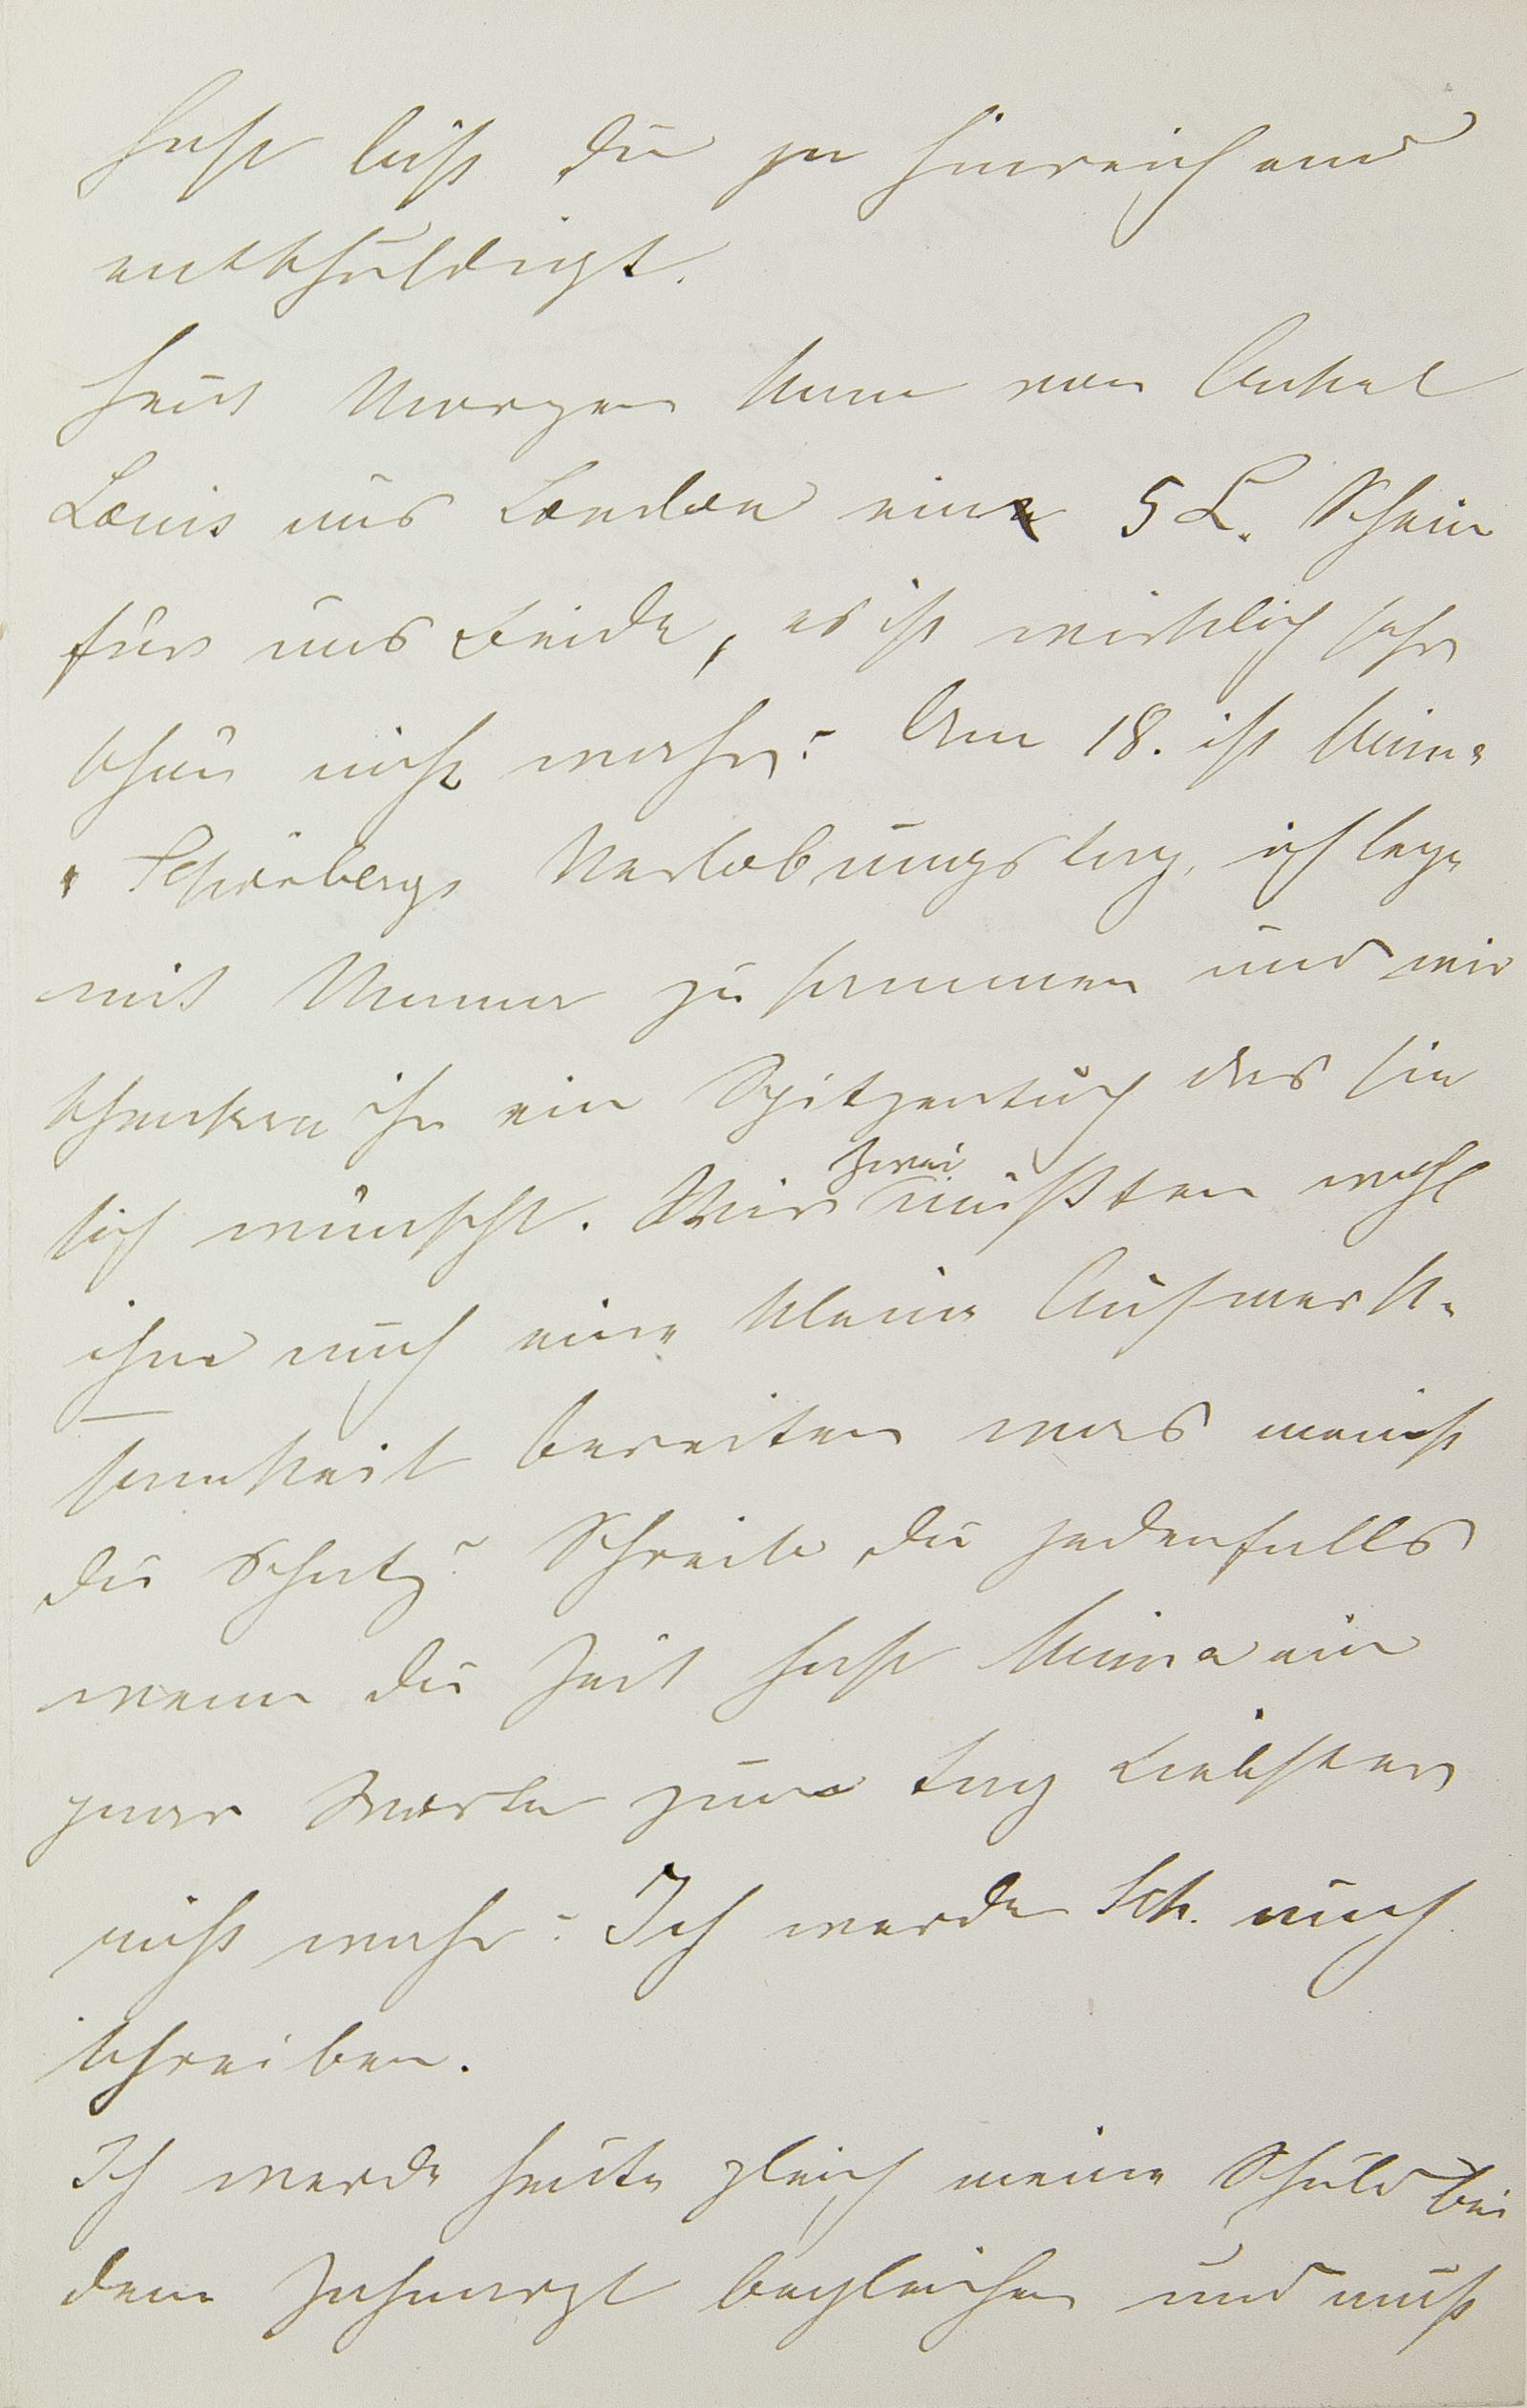 hast bist du ja hinreichend
entschuldigt.
Heut Morgen kam von Onkel
Louis aus London ein 5 L. Schein
für uns Beide, es ist wirklich sehr
schön nicht wahr? Am 18. ist
Schönbergs Verlobungstag, ich lege
mit Mama zusammen und wir
schenken ihr ein Spitzentuch das sie
sich wünscht. Wir zwei müßten wohl
ihm auch eine kleine Aufmerk-
samkeit bereiten was meinst
du Schatz? Schreibe du jedenfalls
wenn du Zeit hast ein
paar Worte zum Tag Liebster
nicht wahr? Ich werde Sch. auch
schreiben.
Ich werde heute gleich meine Schuld bei
dem Zahnarzt begleichen und muß